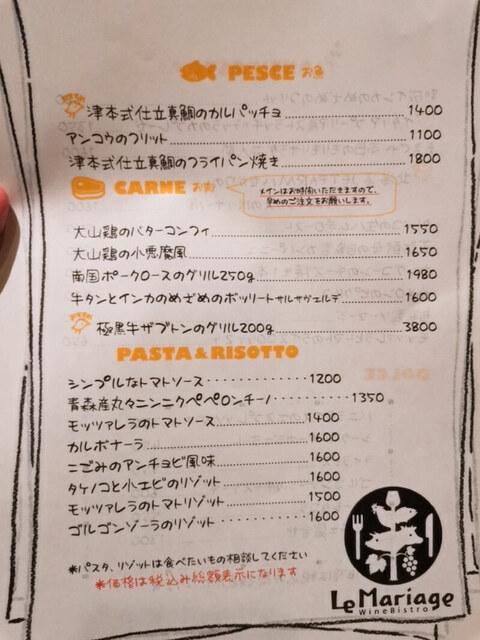 PESCE お魚
津本式仕立真鯛のカルパッチョ 1400
アンコウのフリット 1100
津本式仕立真鯛のフライパン焼き 1800
CARNE お肉
メインはお時間いただきますので、
早めのご注文をお願いします。
大山鶏のバターコンフィ 1550
大山鶏の小悪魔風 1650
南国ポークロースのグリル250g 1980
牛タンとインカのめざめのボッリート サルサヴェルデ 1600
極黒牛ザブトンのグリル200g 3800
PASTA & RISOTTO
シンプルなトマトソース 1200
青森産丸々ニンニクペペロンチーノ 1350
モッツァレラのトマトソース 1400
カルボナーラ 1600
こごみのアンチョビ風味 1600
タケノコと小エビのリゾット 1600
モッツァレラのトマトリゾット 1500
ゴルゴンゾーラのリゾット 1600
*パスタ、リゾットは食べたいもの相談してください
*価格は税込み総額表示になります
Le Mariage
Wine Bistro